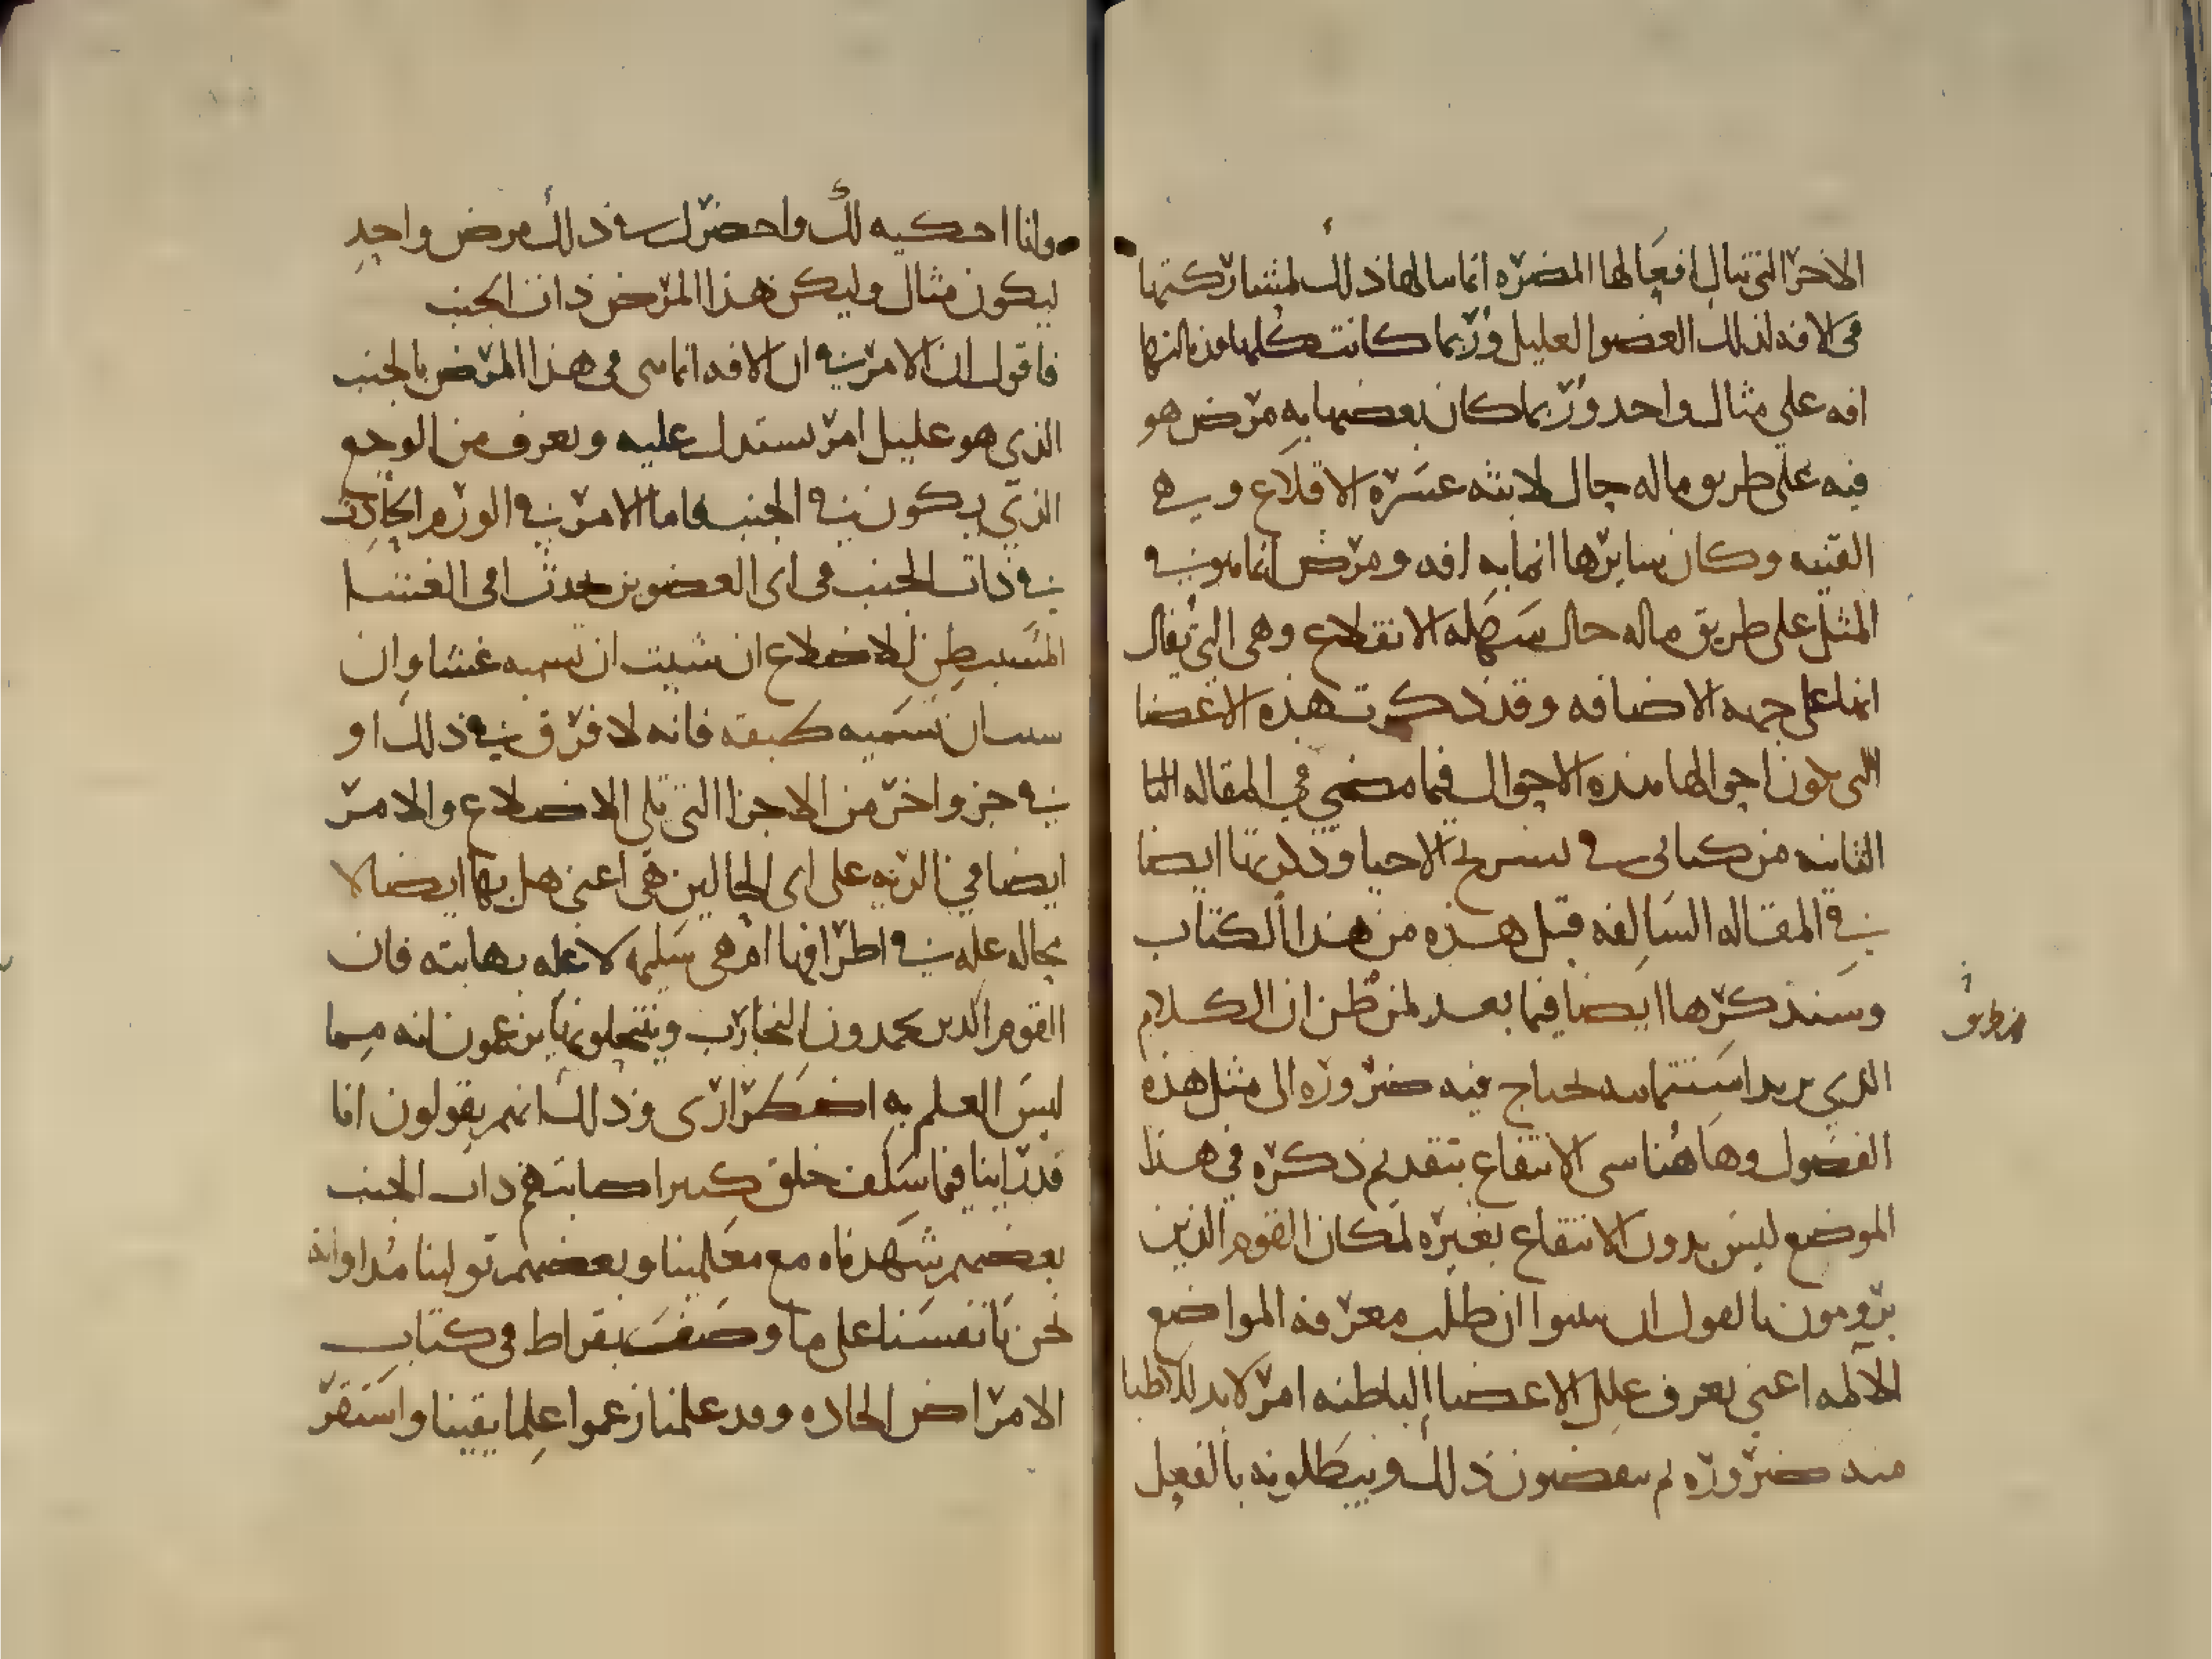 الاخر التي تنال افعالها المضره انما نالها ذالك لمشاركتها
في الافه لذلك العضو العليل وربما كانت كلها قد نالتها
افه على مثال واحد وربما كان بعضها به مرض هو
فيه على طريق ما له حال لابثه عسره الاقلاع وهي
القنيه وكان سايرها انما به افه ومرض انما هو في
المثل على طريق ما له حال سهله الانقلاع وهي التي يقال
انها على جهه الاضافه وقد ذكرت هذه الاعضا
التي تكون احوالها هذه الاحوال فيما مضى في المقاله الثا
الثانيه من كتابي في تشريح الاحيا وذكرتها ايضا
في المقاله السالفه قبل هذه من هذا الكتاب
وسنذكرها ايضا فيما بعد لمن ظن ان الكلام
الذي يريد استتمامه يحتاج فيه ضروره الى مثل هذه
الفصول وهاهنا شي الانتفاع بتقديم ذكره في هذا
الموضع ليس بدون الانتفاع بغيره لمكان القوم الذين
يرومون بالقول ان يثبتوا ان طلب معرفه المواضع
الالمه اعني تعرف علل الاعضا الباطنه امر لا بد للاطبا
منه ضروره ثم ينقضون ذلك ويبطلونه بالفعل
وانا احكيه لك واحضرك في ذلك مرض واحد
ليكون مثال وليكن هذا المرض ذات الجنب
فاقول ان الامر في ان الافه انما هي في هذا المرض بالجنب
الذي هو عليل امر يستدل عليه ويعرف من الوجع
الذي يكون في الجنب فاما الامر في الورم الحادث
في ذات الجنب في اى العضوين يحدث افي الغشا
المستبطن للاضلاع ان شيت ان تسميه غشا وان
شيت ان تسميه طبقه فانه لا فرق في ذلك او
في جزو اخر من الاجزا التي تلي الاضلاع والامر
ايضا في الريه على اى الحالين هي اعني هل بها ايضا لا
محاله عله في اطرافها ام هي سليمه لا عله بها بته فان
القوم الذين يحمدون التجارب وينتحلونها يزعمون انه مما
ليس العلم به اضطراري وذلك انهم يقولون انا
قد راينا فيما سلف خلق كثير اصابتهم ذات الجنب
بعضهم شهدناه مع معلمينا وبعضهم تولينا مداواته
نحن بانفسنا على ما وصف بقراط في كتاب
الامراض الحاده وقد علمنا زعموا علما يقينا واستقر